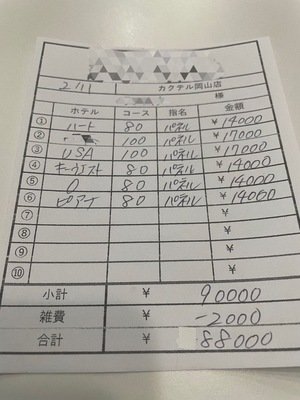 2/11 カクテル岡山店
様
ホテル コース 指名 金額
① ハート 80 パネル ¥14000
② 100 パネル ¥17000
③ USA 100 パネル ¥17000
④ キーウェスト 80 パネル ¥14000
⑤ O 80 パネル ¥14000
⑥ ピアナ 80 パネル ¥14000
⑦ ¥
⑧ ¥
⑨ ¥
⑩ ¥
小計 ¥ 90000
雑費 ¥ -2000
合計 ¥ 88000